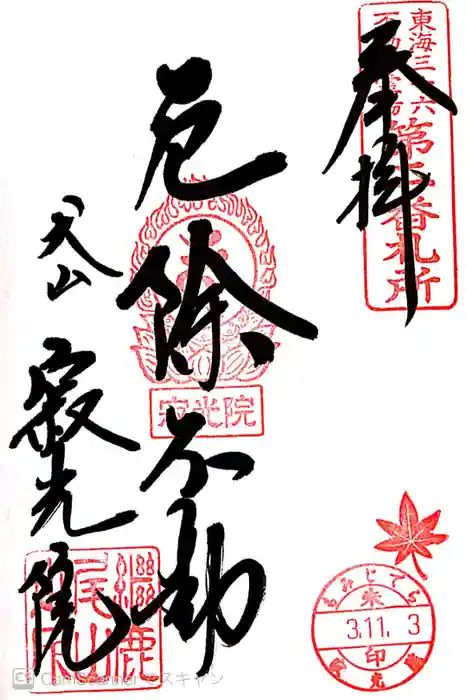 奉拝
東海三十六
不動尊霊場
第三番札所
厄除不動
犬山
寂光院
寂光院
継鹿
尾山
もみじでら
朱
3.11.3
印
CamScanner でスキャン